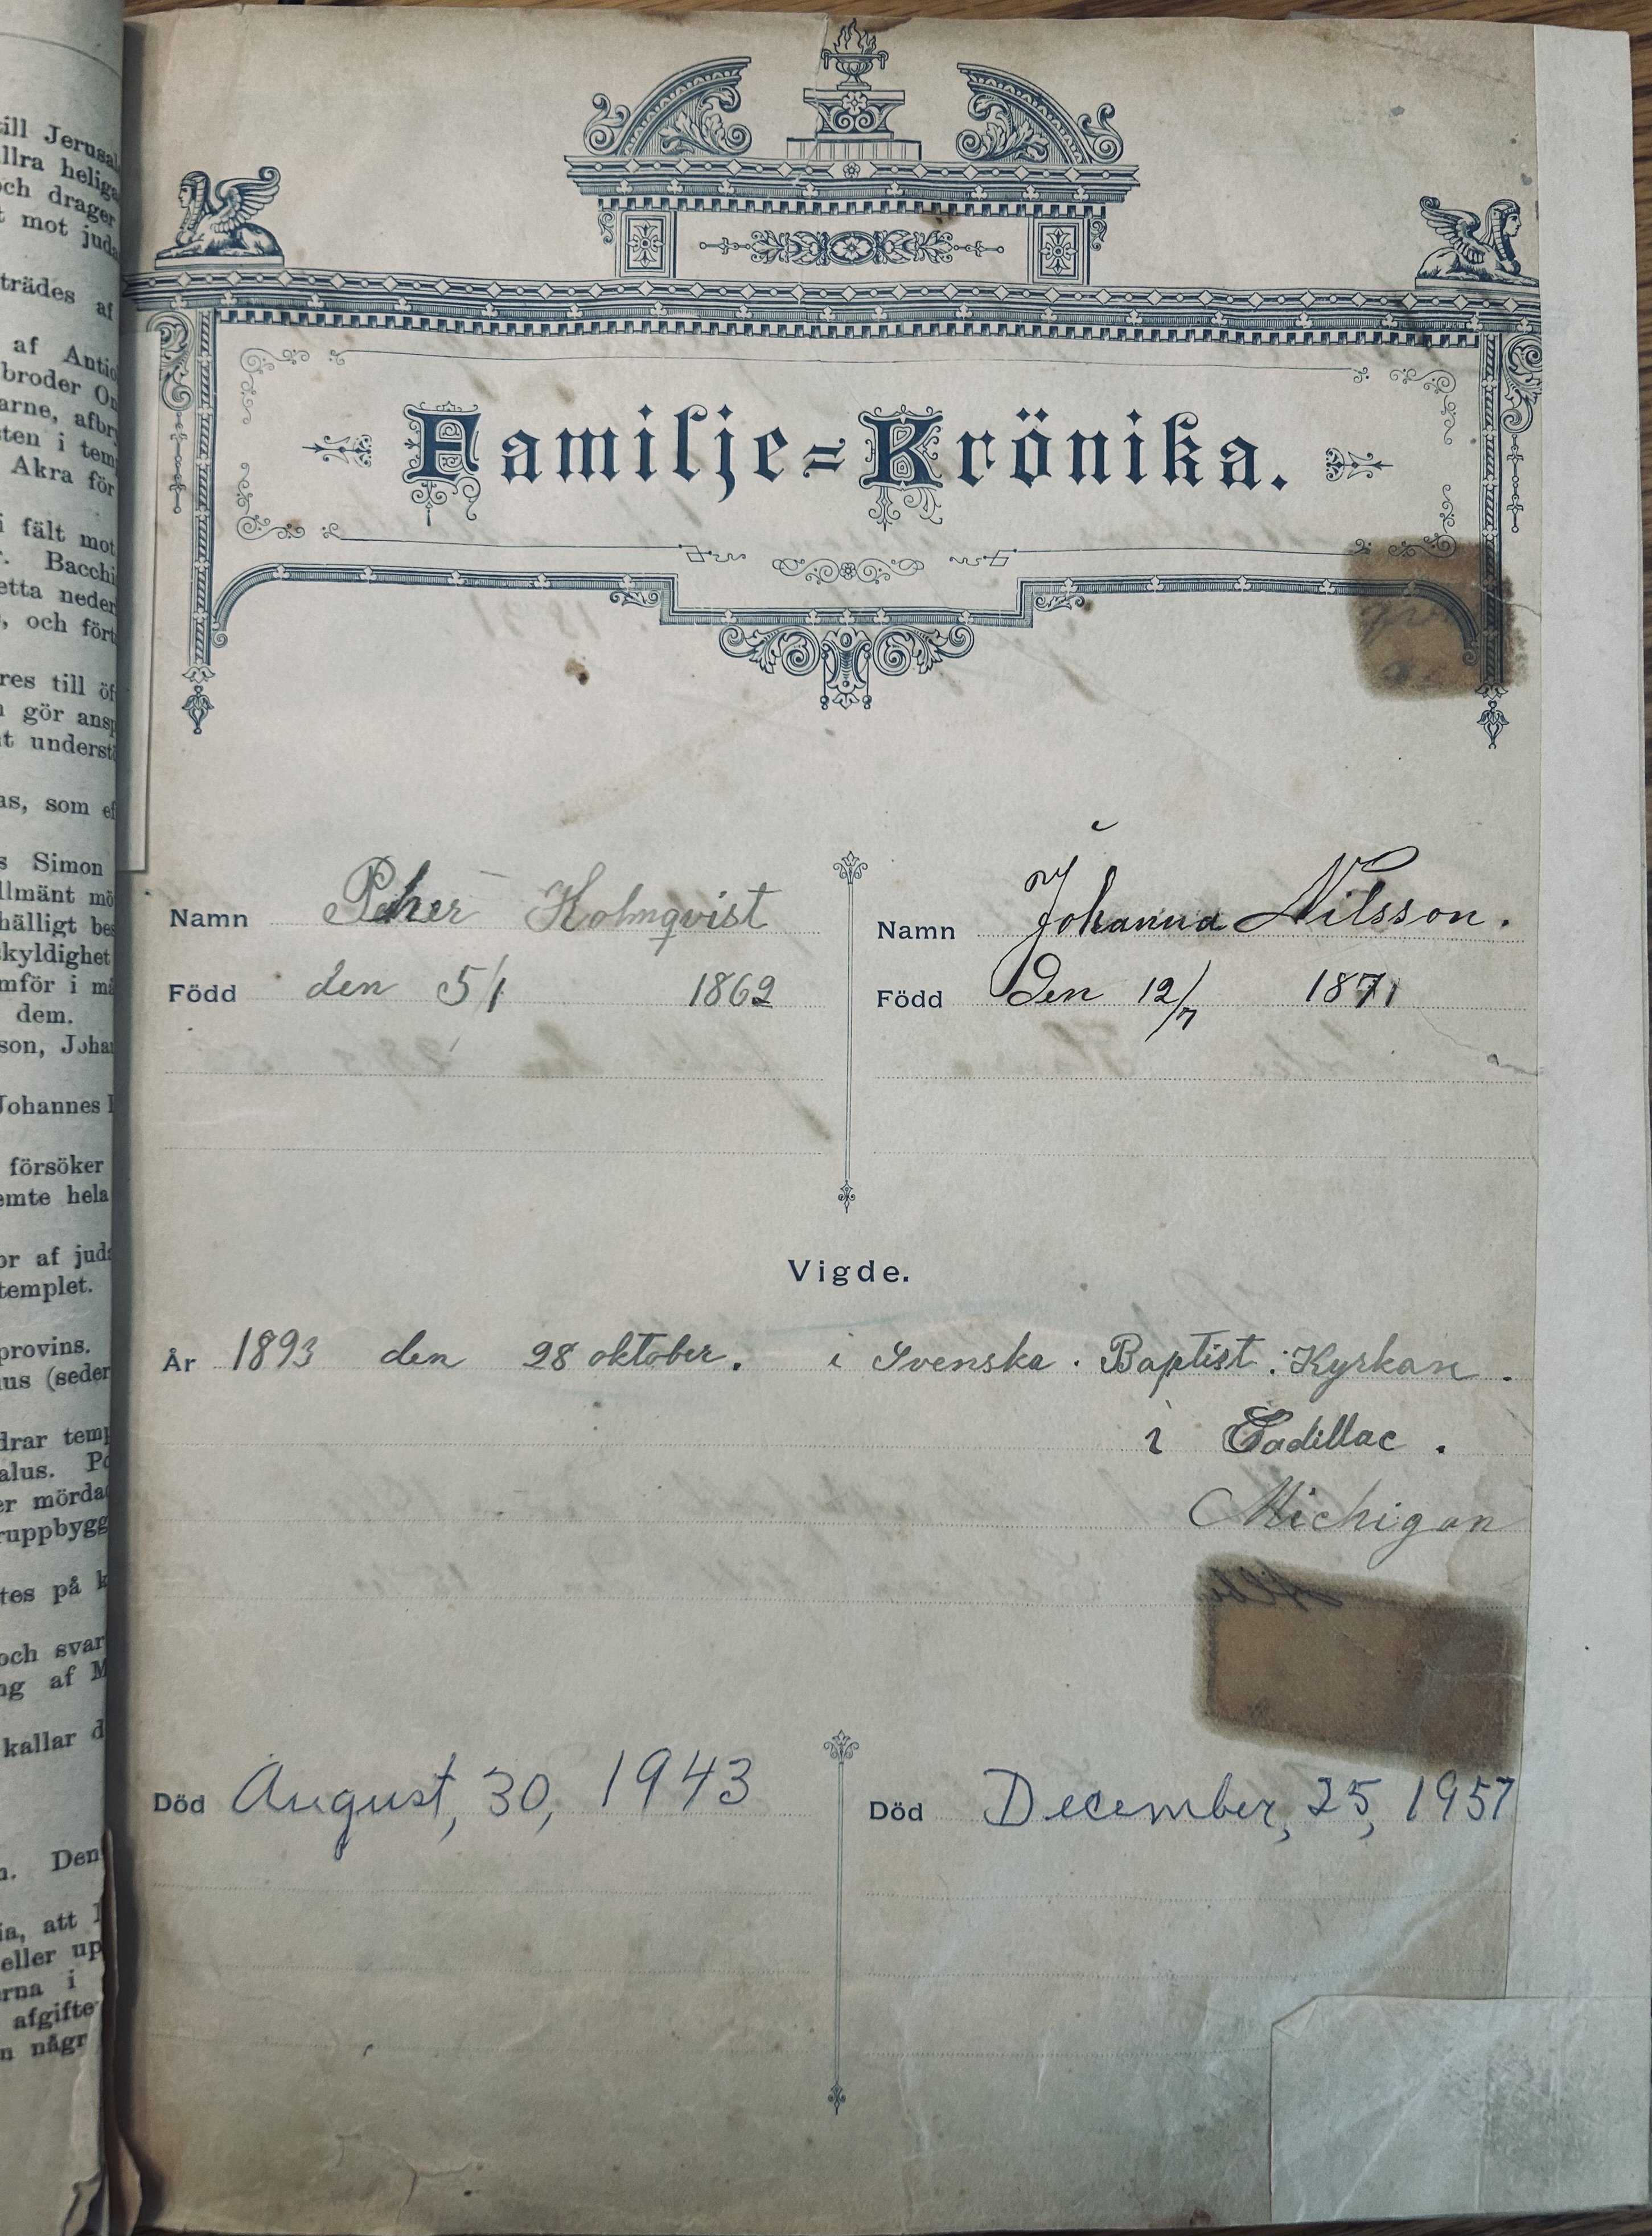 till Jerusal
llra helig
och drager
t mot juda
trädes af
af Antio
broder On
arne, afbr
ten i tem
Akra för
i fält mot
r. Bacchi
etta neder
, och fört
res till öf
n gör ansp
t underst
as, som ef
s Simon
llmänt mö
hälligt bes
kyldighet
mför i må
dem.
son, Johan
Johannes
försöker
emte hela
or af juda
templet.
provins.
us (seder
drar temp
alus. Po
er mörda
ruppbygg
tes på k
och svar
ng af M
kallar d
n. Den
ia, att
eller up
rna i
afgifte
n någr
Familje=Krönika.
Namn Peher Holmqvist
Född den 5/1 1862
Namn Johanna Nilsson.
Född Den 12/7 1871
Vigde.
År 1893 den 28 oktober. i Svenska. Baptist. Kyrkan.
i Cadillac.
Michigan
Död August, 30, 1943
Död December, 25, 1957